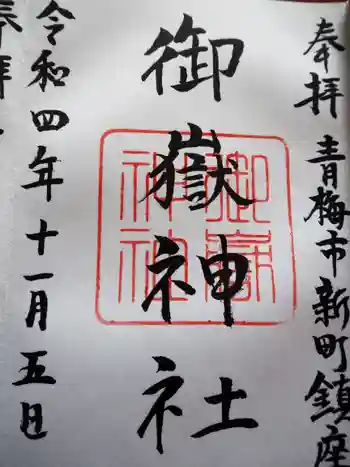 奉拝 青梅市新町鎮座
御嶽神社
御嶽神社
令和四年十一月五日
奉拝